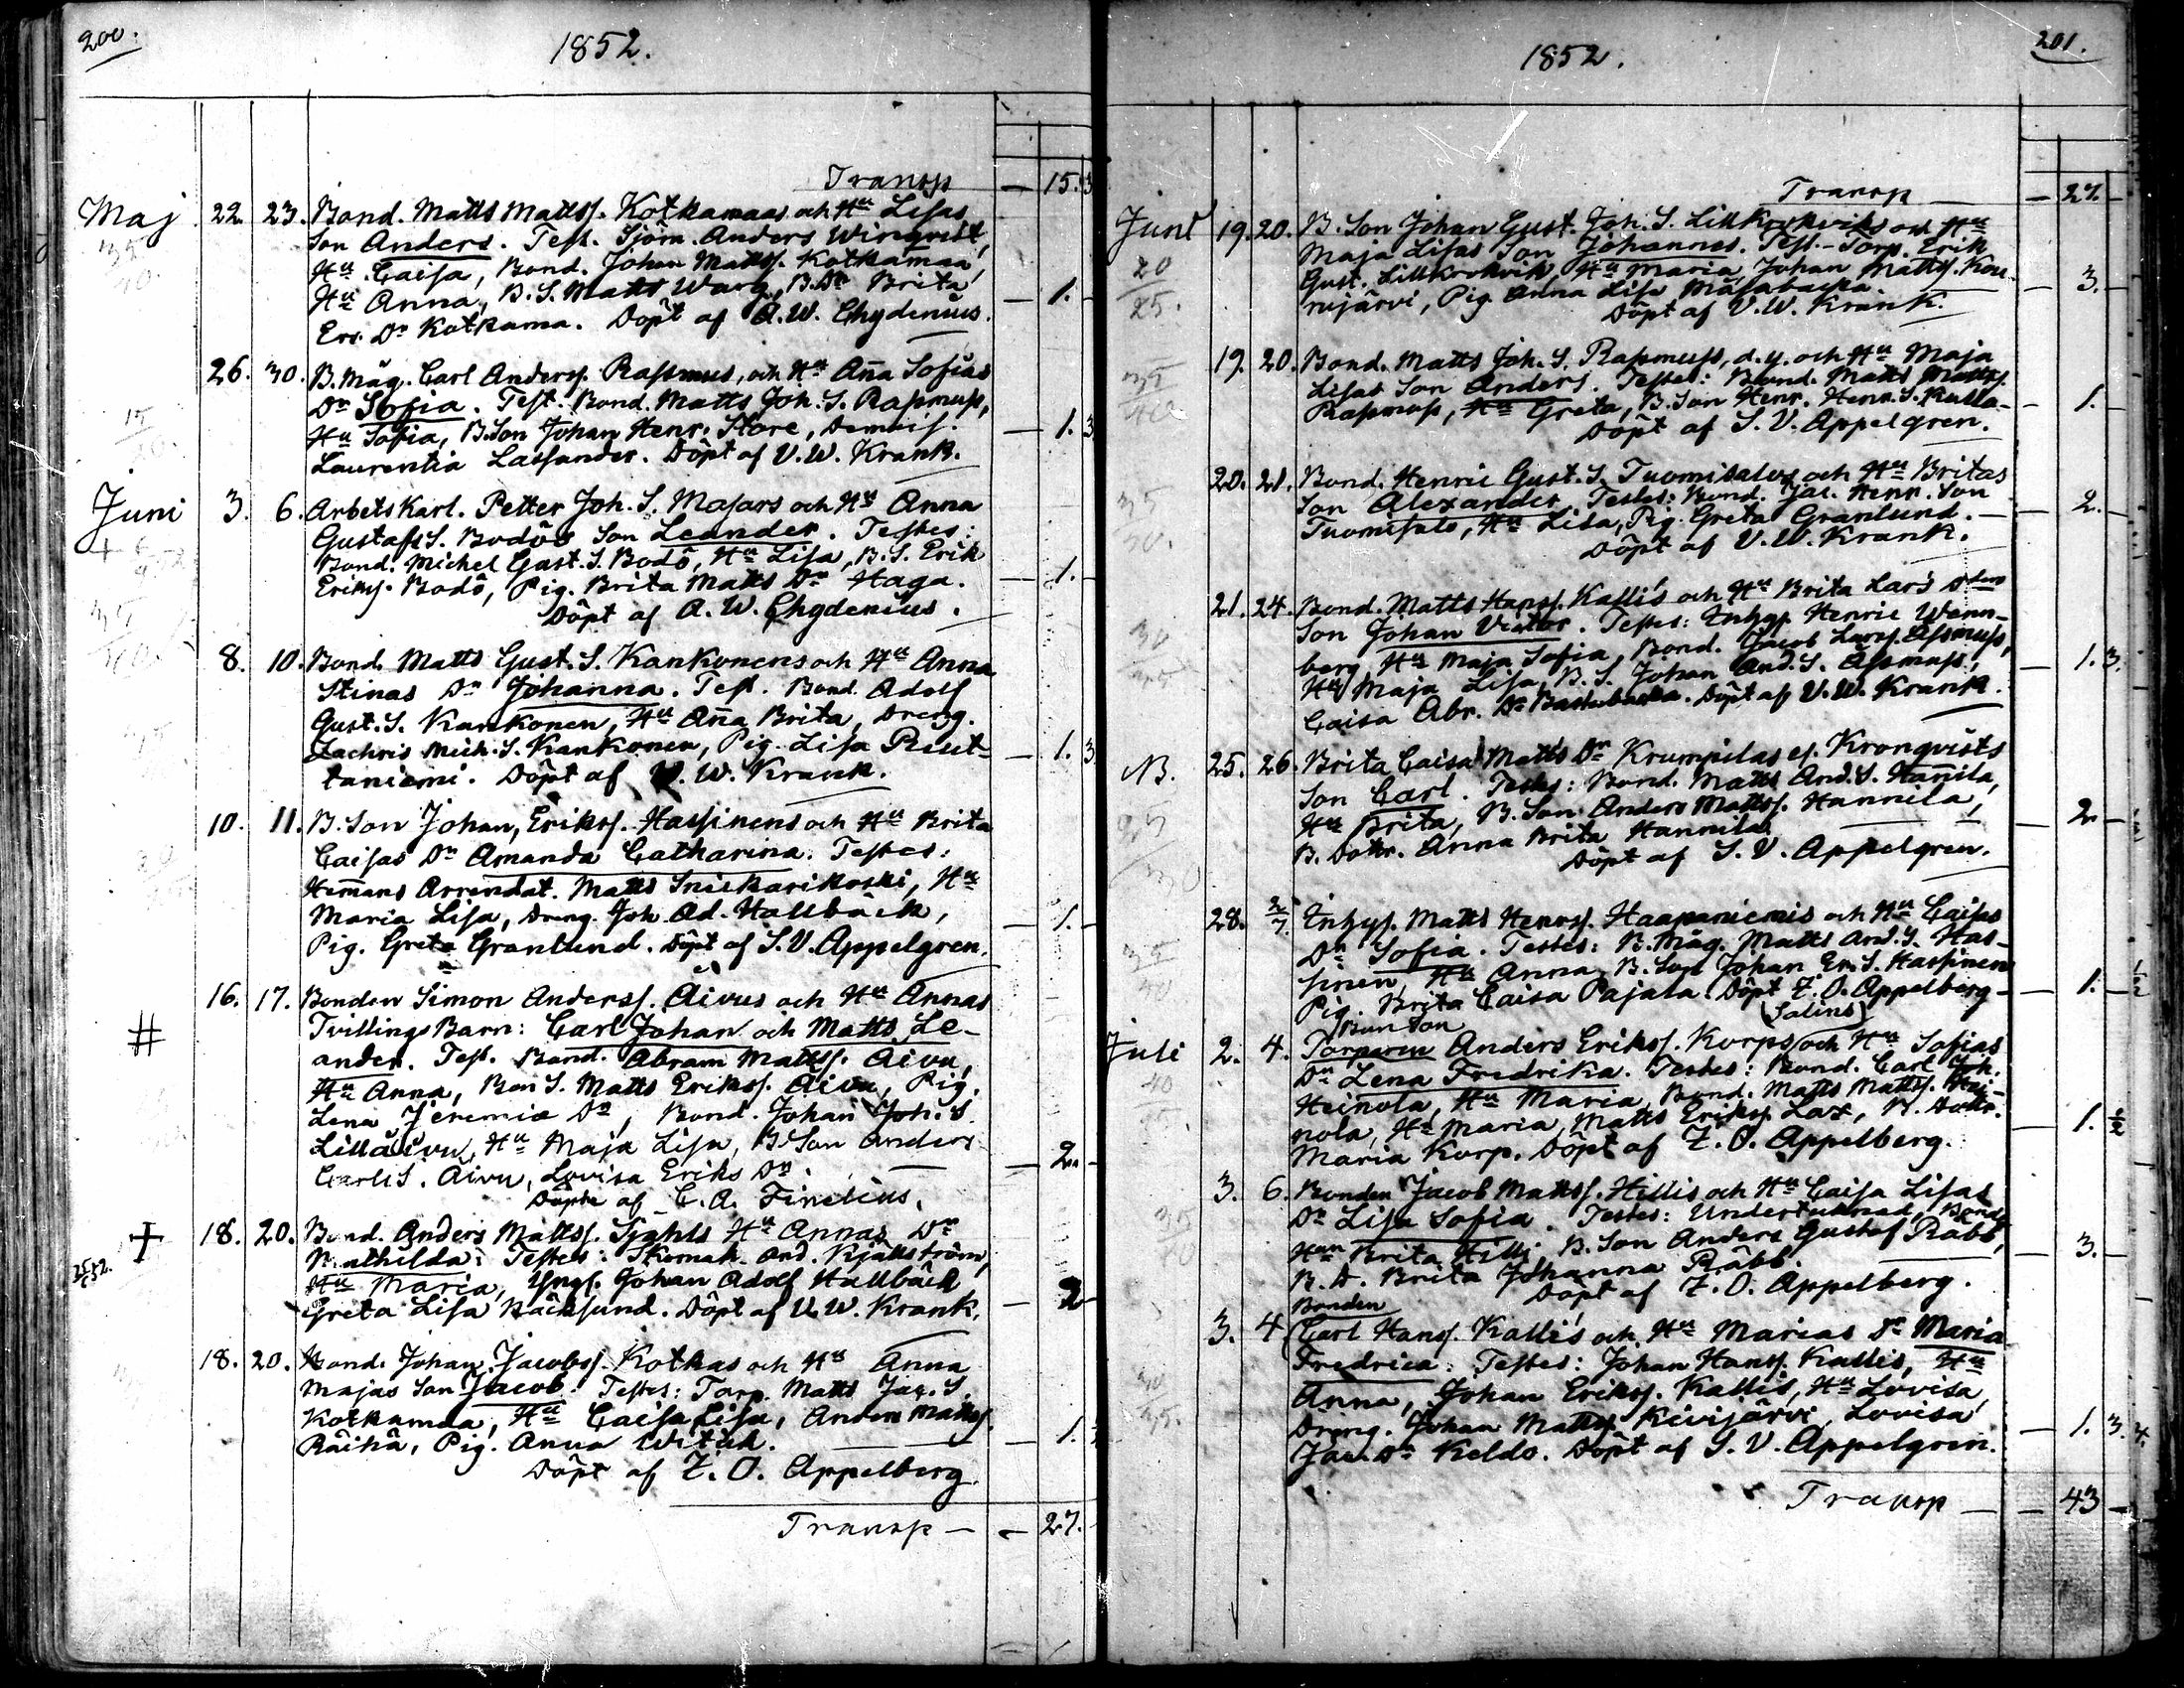 200.
1852.
Transp — 15. 3
Maj 22. 23. Bond. Matts Mattss. Kotkamaas och Hu Lisas
Son Anders. Test. Sjöm. Anders Winqvist,
Hu Caisa, Bond. Johan Mattss. Kotkamaa,
Hu Anna, B. S. Matts Warg, B. Dr Brita
Ers. Dr Kotkama. Döpt af A. W. Chydenius. — 1. —
26. 30. B. Måg. Carl Anderss. Rasmus, och Hu Anna Sofias
Dr Sofia. Test. Bond. Matts Joh. S. Rasmuss,
Hu Sofia, B. Son Johan Henr. Store, Demois.
Laurentia Lassander. Döpt af V. W. Krank. — 1. 3
Juni 3. 6. Arbets Karl. Petter Joh. S. Masars och Hu Anna
Gustafs S. Bodös Son Leander. Testes:
Bond. Michel Gust. S. Bodö, Hu Lisa, B. S. Erik
Erikss. Bodö, Pig. Brita Matts Dr Haga. — 1. —
Döpt af A. W. Chydenius.
8. 10. Bond. Matts Gust. S. Kankonens och Hu Anna
Stinas Dr Johanna. Test. Bond. Adolf
Gust. S. Kankonen, Hu Anna Brita, Dreng.
Zachris Mich. S. Kankonen, Pig. Lisa Ruut-
taniemi. Döpt af V. W. Krank. — 1. 3
10. 11. B. Son Johan, Erikss. Hassinens och Hu Brita
Caisas Dr Amanda Catharina. Testes:
Hemmans Arrendat. Matts Snickarikoski, Hu
Maria Lisa, Dreng. Joh. Ad. Hallbäck,
Pig. Greta Granlund. Döpt af S. V. Appelgren. — 1. —
# 16. 17. Bonden Simon Anderss. Aivus och Hu Annas
Tvillings Barn: Carl Johan och Matts Le-
ander. Test. Bond. Abram Mattss. Aivu,
Hu Anna, Bon S. Matts Erikss. Aivu, Pig.
Lena Jeremiæ Dr, Bond. Johan Joh. S.
Lillaivu, Hu Maja Lisa, B. Son Anders
Carls S. Aivu, Lovisa Eriks Dr. — 2. —
Döpte af C. A. Finelius.
+ 18. 20. Bond. Anders Mattss. Sjahls Hu Annas Dr
Mathilda: Testes: Skomak. And. Kjällström,
Hu Maria, Yngl. Johan Adolf Hallbäck
Greta Lisa Bäcksund. Döpt af V. W. Krank. — 2 —
18. 20. Bond. Johan Jacobss. Kotkas och Hu Anna
Majas Son Jacob. Testes: Torp. Matts Jac. S.
Kotkamaa, Hu Caisa Lisa, Anders Mattss.
Räihä, Pig. Anna Witick. — 1. 3
Döpt af Z. O. Appelberg.
Transp — 27.
201.
1852.
Transp — 27. —
Juni 19. 20. B. Son Johan Gust. Joh. S. Lillkorkviks och Hu
Maja Lisas Son Johannes. Test. Torp. Erik
Gust. Lillkorkvik, Hu Maria, Johan Mattss. Kou-
rujärvi, Pig. Anna Lisa Måsabacka. — 3. —
Döpt af V. W. Krank.
19. 20. Bond. Matts Joh. S. Rasmuss, d. y. och Hu Maja
Lisas Son Anders. Testes: Bond. Matts Mattss.
Rasmuss, Hu Greta, B. Son Henr. Henr. S. Kulla. — 1. —
Döpt af S. V. Appelgren.
20. 21. Bond. Henric Gust. S. Tuomisalos och Hu Britas
Son Alexander. Testes: Bond. Jac. Henr. Son
Tuomisalo, Hu Lisa, Pig. Greta Granlund. — 2. —
Döpt af V. W. Krank.
21. 24. Bond. Matts Hanss. Kallis och Hu Brita Lars Drs
Son Johan Victor. Testes: Inhys. Henric Wenn-
berg, Hu Maja Sofia, Bond. Jacob Larss. Assmuss,
Hu Maja Lisa, B. S. Johan And. S. Åssmuss, — 1. 3.
Caisa Abr. Dr Bastubacka. Döpt af V. W. Krank.
N. 25. 26. Brita Caisa Matts Dr Krumpilas ej. Kronqvists
Son Carl. Testes: Bond. Matts And. S. Hannila,
Hu Brita, B. Son Anders Mattss. Hannila,
B. Dottr. Anna Brita Hannila. — 2 —
Döpt af S. V. Appelgren.
28. 2/7 Inhys. Matts Henrss. Haapaniemis och Hu Caisas
Dr Sofia. Testes: B. Måg. Matts And. S. Has-
sinen, Hu Anna, B. Son Johan Er. S. Hassinen
Pig. Brita Caisa Pajala. Döpt Z. O. Appelberg — 1. 1/2
Bon Son (Salins)
Juli 2. 4. Torparen Anders Erikss. Korps och Hu Sofias
Dr Lena Fredrika. Testes: Bond. Carl Joh.
Heinola, Hu Maria, Bond. Matts Mattss. Hei-
nola, Hu Maria, Matts Erikss. Lax, B. Dottr.
Maria Korp. Döpt af Z. O. Appelberg. — 1. 1/2
3. 6. Bonden Jacob Mattss. Hillis och Hu Caisa Lisas
Dr Lisa Sofia. Testes: Undertecknad, Bonde
Hun Brita Hilli, B. Son Anders Gustaf Räbb,
B. D. Brita Johanna Räbb. — 3. —
Döpt af Z. O. Appelberg.
Bonden
3. 4. Carl Hanss. Kallis och Hu Marias Dr Maria
Fredrica: Testes: Johan Hanss. Kallis, Hu
Anna, Johan Erikss. Kallis, Hu Lovisa,
Dreng. Johan Mattss. Kivijärvi, Lovisa
Jac. Dr Keldo. Döpt af S. V. Appelgren. — 1. 3. 4.
Transp — 43 —